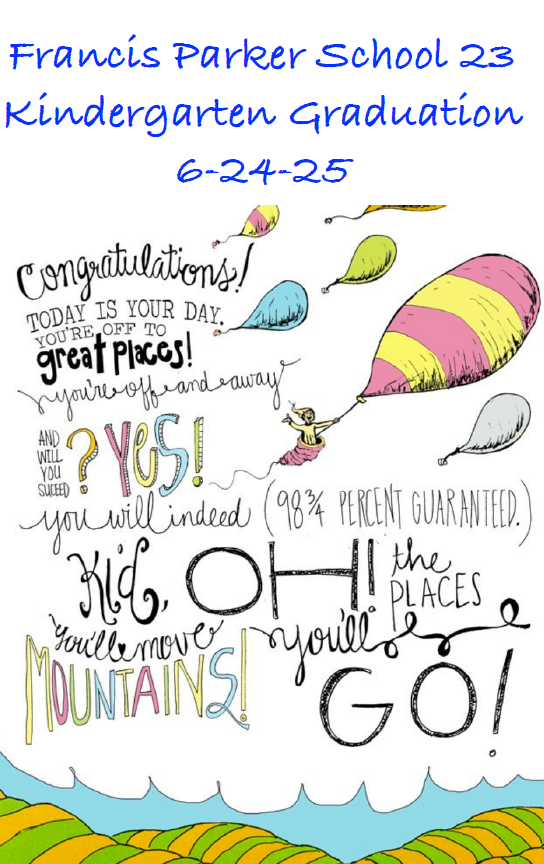 Francis Parker School 23
Kindergarten Graduation
6-24-25
Congratulations!
TODAY IS YOUR DAY.
YOU'RE OFF TO
great places!
you're off and away
AND
WILL
YOU
SUCEED
? YES!
you will indeed
(98 3/4 PERCENT GUARANTEED.)
Kid,
you'll move
MOUNTAINS!
OH! the
PLACES
you'll
GO!